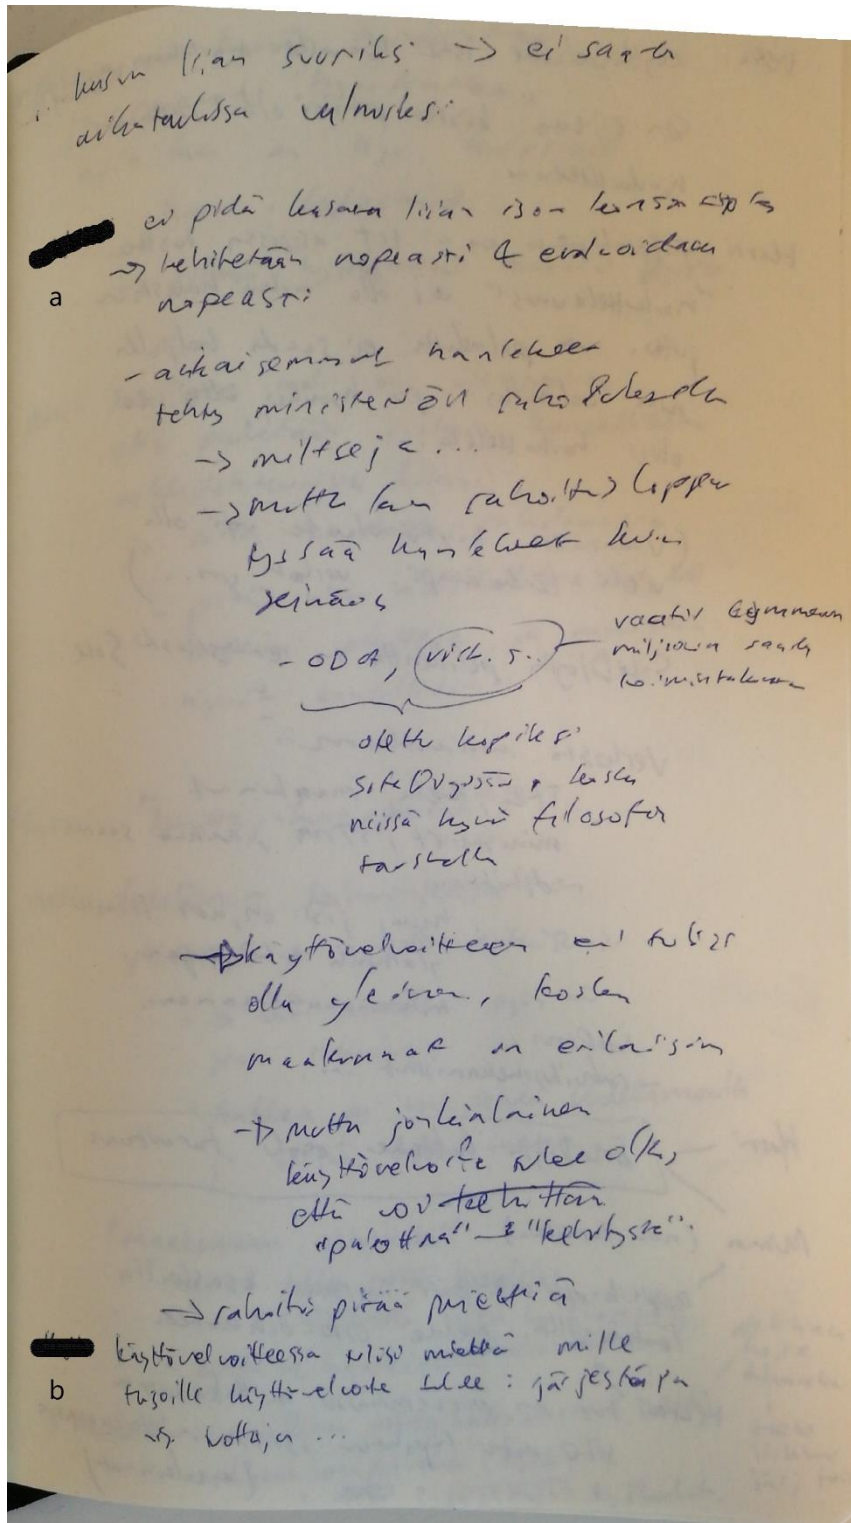 .. kasva liian suuriksi → ei saada
aikataulussa valmiiksi.
ei pidä kasvaa liian ison kanssa
→ kehitetään nopeasti & evaluoidaan
nopeasti
a
- aikaisemmat hankkeet
tehty ministeriön raho
→ miltseja...
→ mutta kun rahoitus loppuu
tyssää hankkeet kuin
seinään
- ODA, virt. s..
vaatii kymmenen
miljoona saada
toimintakuntoon
otettu kopiksi
soteDigissä, koska
niissä hyvä filosofia
taustalla
→ käyttövelvoitteen ei tulisi
olla yleinen, koska
maakunnat on erilaisia
→ mutta jonkinlainen
käyttövelvoite tulee olla,
että voi kehittää
"palottaa" → "kehitystä".
→ rahoitus pitää miettiä
käyttövelvoitteessa tulisi miettiä mille
tasoille käyttövelvoite tulee: järjestäjä
vs. tuottaja ...
b